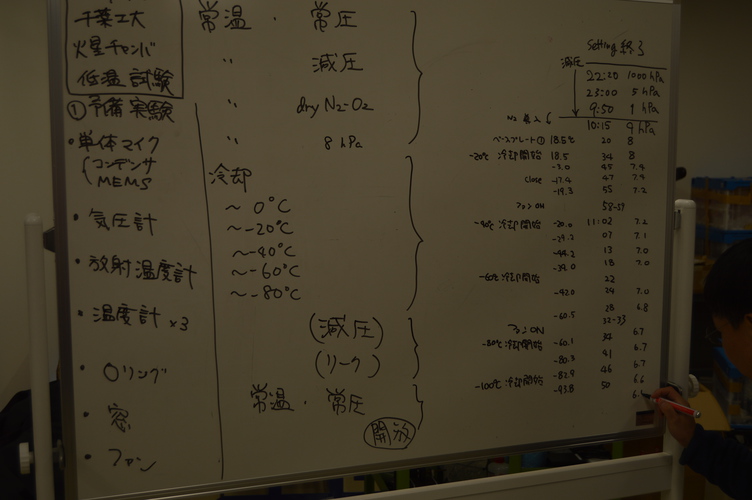 千葉工大
火星チャンバ
低温試験
①予備実験
・単体マイク
(コンデンサ
MEMS
・気圧計
・放射温度計
・温度計 ×3
・Oリング
・窓
・ファン
常温・常圧
〃 減圧
〃 dry N2-O2
〃 8 hPa
冷却
～ 0℃
～-20℃
～-40℃
～-60℃
～-80℃
(減圧)
(リーク)
常温・常圧
開放
Setting 終了
減圧 22:20 1000 hPa
23:00 5 hPa
9:50 1 hPa
10:15 9 hPa
ベースプレート① 18.5℃ 20 8
-20℃ 冷却開始 18.5 34 8
-3.0 45 7.9
close -17.4 47 7.9
-19.3 55 7.2
ファンON 58-59
-40℃ 冷却開始 -20.0 11:02 7.2
07 7.1
-44.2 13 7.0
-39.0 18 7.0
-60℃ 冷却開始 22
-42.0 24 7.0
-60.5 28 6.8
ファンON 32-33
-80℃ 冷却開始 -60.1 34 6.7
-80.3 41 6.7
-82.9 46 6.7
-100℃ 冷却開始 -93.8 50 6.6